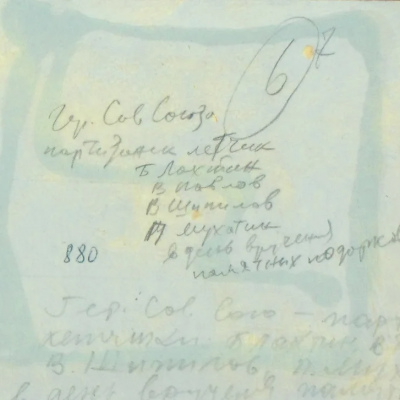 6
Гер. Сов Союза
партизанск летчик
Б Лахтин
В Павлов
В Шипилов
М Мухатик
в день вручения
памятных подарков
880
Гер. Сов. Союз - парт
Б Лахтин В
В. Шипилов, П. Мух
в день вручения памят